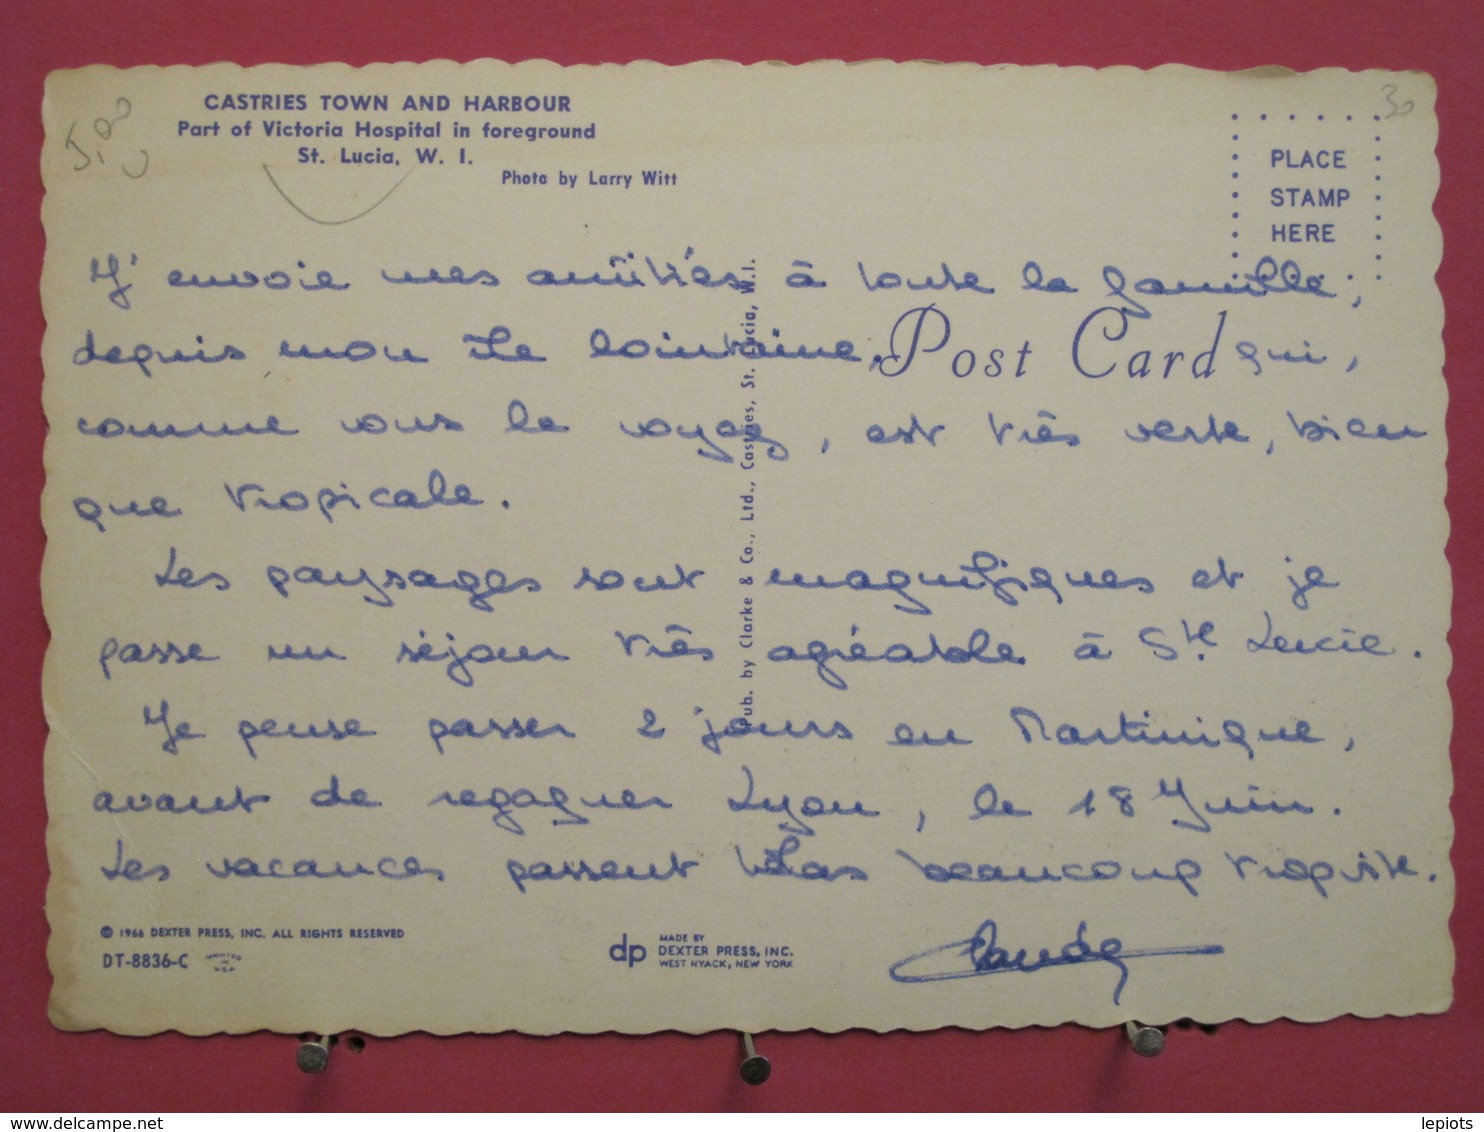 CASTRIES TOWN AND HARBOUR
Part of Victoria Hospital in foreground
St. Lucia, W. I.
Photo by Larry Witt
30
PLACE
STAMP
HERE
J'envoie mes amitiés à toute la famille,
depuis mon île lointaine, qui,
Post Card
comme vous le voyez, est très verte, bien
que tropicale.
Les paysages sont magnifiques et je
passe un séjour très agréable à Ste Lucie.
Je pense passer 2 jours en Martinique,
avant de regagner Lyon, le 18 Juin.
Les vacances passent hélas beaucoup trop vite.
Claude
Pub. by Clarke & Co., Ltd., Castries, St. Lucia, W.I.
© 1966 DEXTER PRESS, INC. ALL RIGHTS RESERVED
DT-8836-C
PRINTED
IN
U.S.A.
dp
MADE BY
DEXTER PRESS, INC.
WEST NYACK, NEW YORK
lepiots